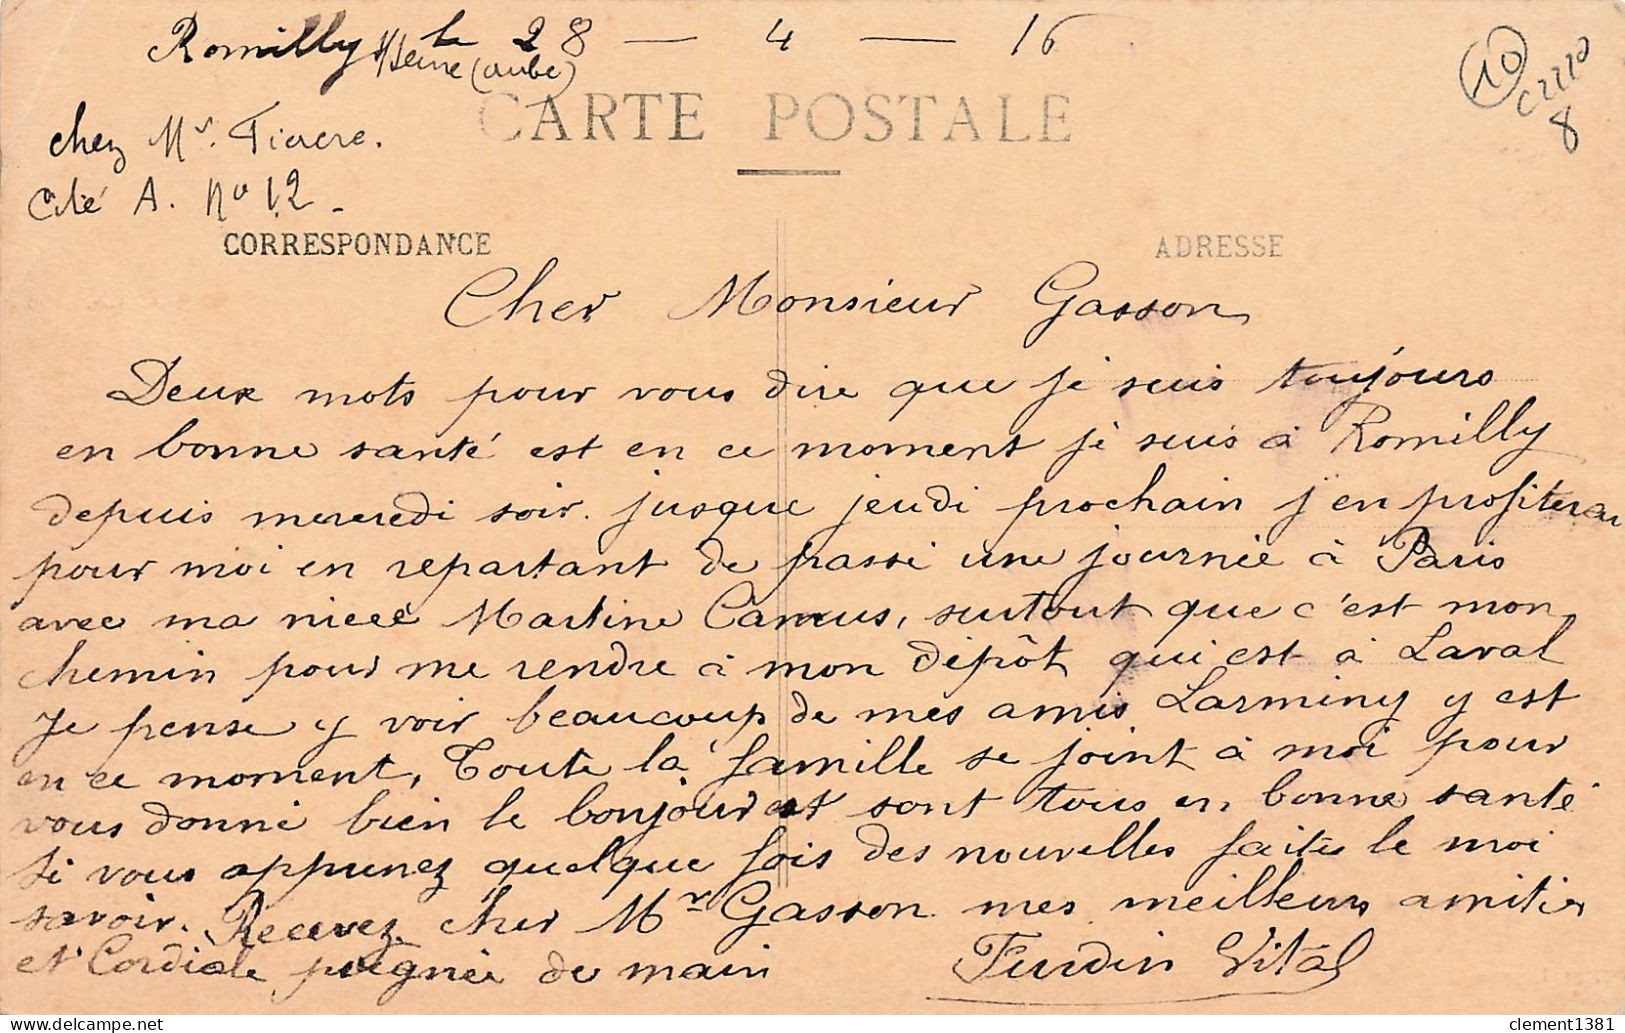 Romilly s/Seine (aube) le 28 — 4 — 16
10
8
CARTE POSTALE
chez Mr. Fiacre.
Cité A. No 12 -
CORRESPONDANCE
ADRESSE
Cher Monsieur Gasson
Deux mots pour vous dire que je suis toujours
en bonne santé est en ce moment je suis à Romilly
depuis mercredi soir. jusque jeudi prochain j'en profiterai
pour moi en repartant de passé une journée à Paris
avec ma niece Martine Camus, surtout que c'est mon
chemin pour me rendre à mon dépôt qui est à Laval
Je pense y voir beaucoup de mes amis Larminy y est
en ce moment, Toute la famille se joint à moi pour
vous donné bien le bonjour est sont tous en bonne santé
Si vous apprenez quelque fois des nouvelles faites le moi
savoir. Recevez cher Mr Gasson mes meilleurs amitiés
et Cordiale poignée de main Furdin Vital
delcampe.net
clement1381